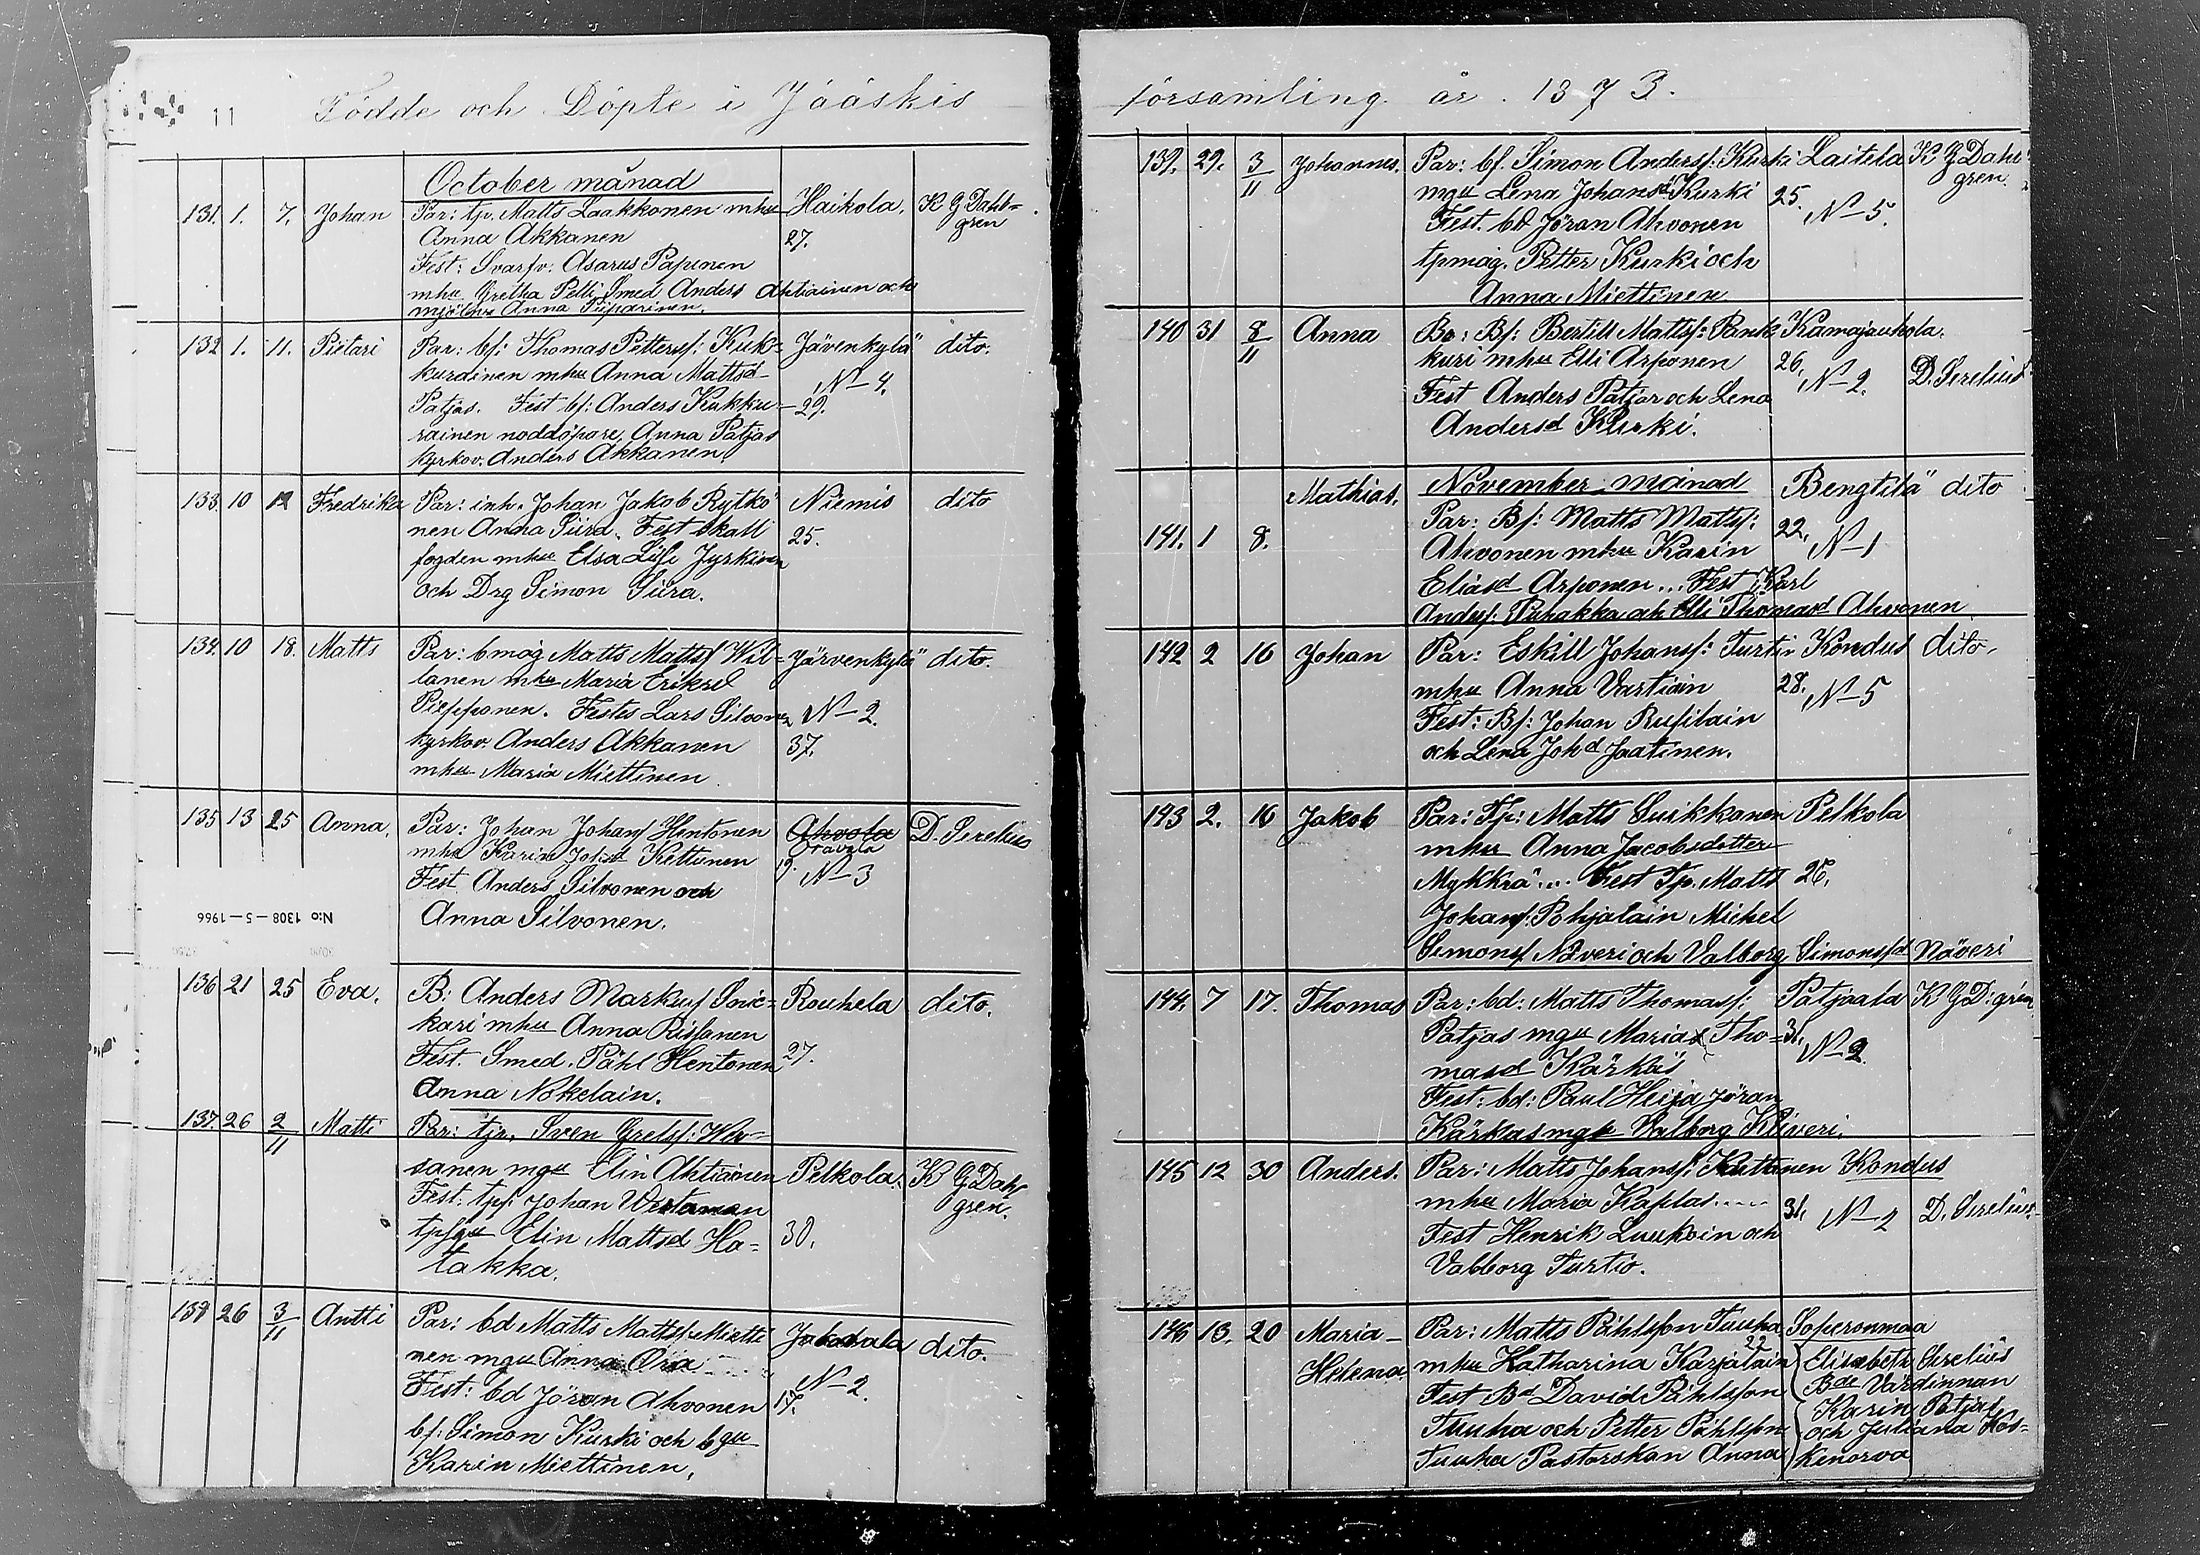 11 Födde och Döpte i Jääskis
October månad
131. 1. 7. Johan Par: tp. Matts Laakkonen mhu Haikola. K G Dahl=
Anna Akkanen 27. gren
Fest: Svarfv. Asarus Papinen
mhu Gretha Pelli Smed Anders Ahtiainen och
Anna Piiparinen.
132 1. 11. Pietari Par: bf: Thomas Pettersf: Kuk= Jävenkylä dito.
kurdinen mhu Anna Mattsd N-4.
Patjas. Fest bf: Anders Kukku- 29.
rainen nöddöpare, Anna Patjas
kyrkov. Anders Akkanen
133. 10 Fredrika Par: inh. Johan Jakob Rytkö Niemis dito
nen Anna Siira. Fest Skall 25.
fogden mhu Elsa Lisi Jyrkinen
och Drg Simon Siira.
134. 10 18. Matts Par: bmåg Matts Mattsf Wil= Järvenkylä dito.
lanen mhu Maria Eriksd
Piepponen. Festes Lars Silvonen N-2.
kyrkov. Anders Akkanen 37.
mhu Maria Miettinen
135 13 25 Anna. Par: Johan Johansf Hentonen Ahvola D. Serelius
mhu Karin Johsd Kettunen Oravala
Fest Anders Silvonen och N-3
Anna Silvonen.
N:o 1308-5-1966
136 21 25 Eva. B: Anders Markusf Snic= Rouhela dito.
kari mhu Anna Rissanen
Fest. Smed. Påhl Hentonen 27.
Anna Nokelain.
137. 26 2/11 Matti Par: tjr. Sven Gretsf:
sanen mgu Elin Ahtiainen Pelkola. K G Dahl
Fest: tpf: Johan gren.
Elin Mattsd Ha= 30.
takka.
138 26 3/11 Antti Par: bd Matts Mattsf Mietti Jakobala dito.
nen mgu Anna Ora
Fest: bd Jöran Ahvonen N-2.
bf: Simon Kurki och bgu 17.
Karin Miettinen.
församling år. 1873.
139. 29. 3/11 Johannes. Par: bf. Simon Andersf: Kurki Laitela K G Dahl
mgu Lena Johansd Kurki 25. gren.
Fest. bd Jöran Ahvonen N-5.
tpmåg. Petter Kurki och
Anna Miettinen
140 31 8/11 Anna Bo: Bf: Bertill Mattsf: Pank Kamajauhola.
kuri mhu Elli Arponen 26.
Fest Anders Patjas och Lena N-2. D. Serelius
Andersd Kurki.
November månad
Mathias. Bengtilä dito
141. 1 8. Par: Bf: Matts Matsf: 22.
Ahvonen mhu Karin N-1
Eliasd Arponen... Fest Karl
Andersf: Puhakka och Elli Thomasd Ahvonen
142 2 16 Johan Par: Eskill Johansf: Turtin Kondus dito.
mhu Anna Vartiain 28. N-5
Fest: Bf: Johan Rusilain
och Lena Johd Jaatinen.
143 2. 16 Jakob Par: Tp: Matts Suikkanen Pelkola
mhu Anna Jacobsdotter
Mykkrä... Fest Tp. Matts 26.
Johansf. Pohjalain Michel
Simonsf Näveri och Valborg Simonsfd Näveri
144. 7 17. Thomas Par: bd: Matts Thomasf: Patjaala K G D:gren
Patjas mgu Maria Tho= 31.
masd Kärkäs N-2.
Fest: bd: Paul Heija Jöran
Kärkas mgu Valborg
145 12 30 Anders. Par: Matts Johansf: Kuttonen Kondus
mhu Maria Kaplas.... 31. N-2 D. Serelius
Fest Henrik Luukain och
Valborg Turtio.
146 13. 20 Maria- Par: Matts Påhlsson Tuuha Soperonmaa
Helena mhu Katharina Karjalain 22 Elisabeth Serelius
Fest Bd David Påhlsson Bde Värdinnan
Tuuha och Petter Påhlsson Karin Patjas
Tuuha Pastorskan Anna och Juliana Kos-
kenorva